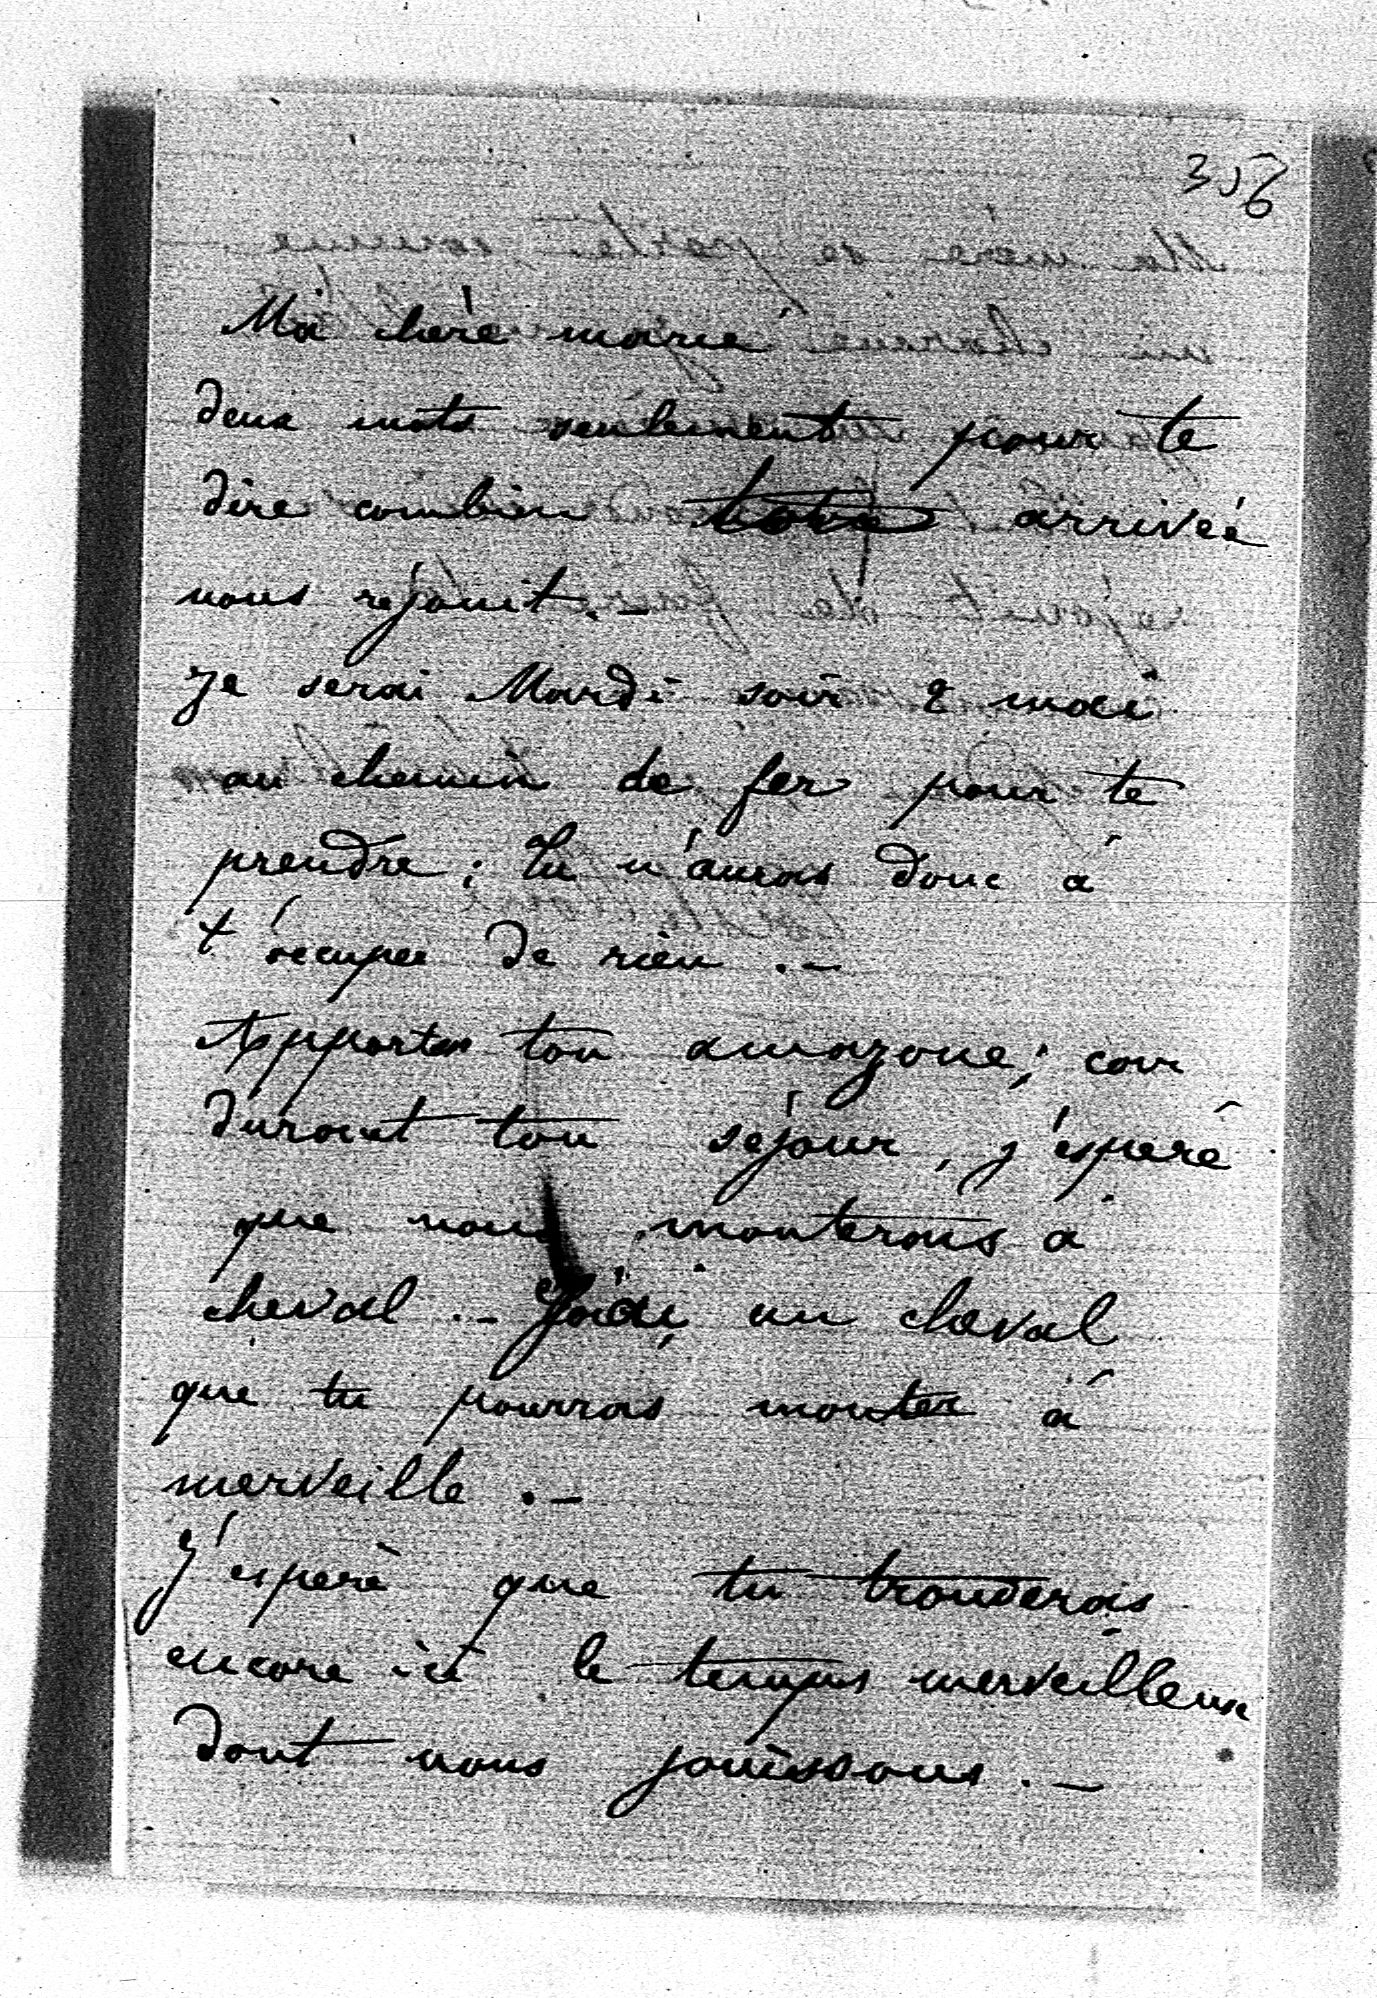 356
Ma chère marie
deux mots seulement pour te
dire combien arrivée
nous réjouit. –
Je serai Mardi soir 2 mai
au chemin de fer pour te
prendre ; tu n'auras donc à
t'occuper de rien . –
Apportes ton amazone ; car
durant ton séjour, j'espère
que nous monterons à
cheval . – J'ai un cheval
que tu pourras monter à
merveille . –
J'espère que tu trouveras
encore ici le temps merveilleux
dont nous jouissons . –